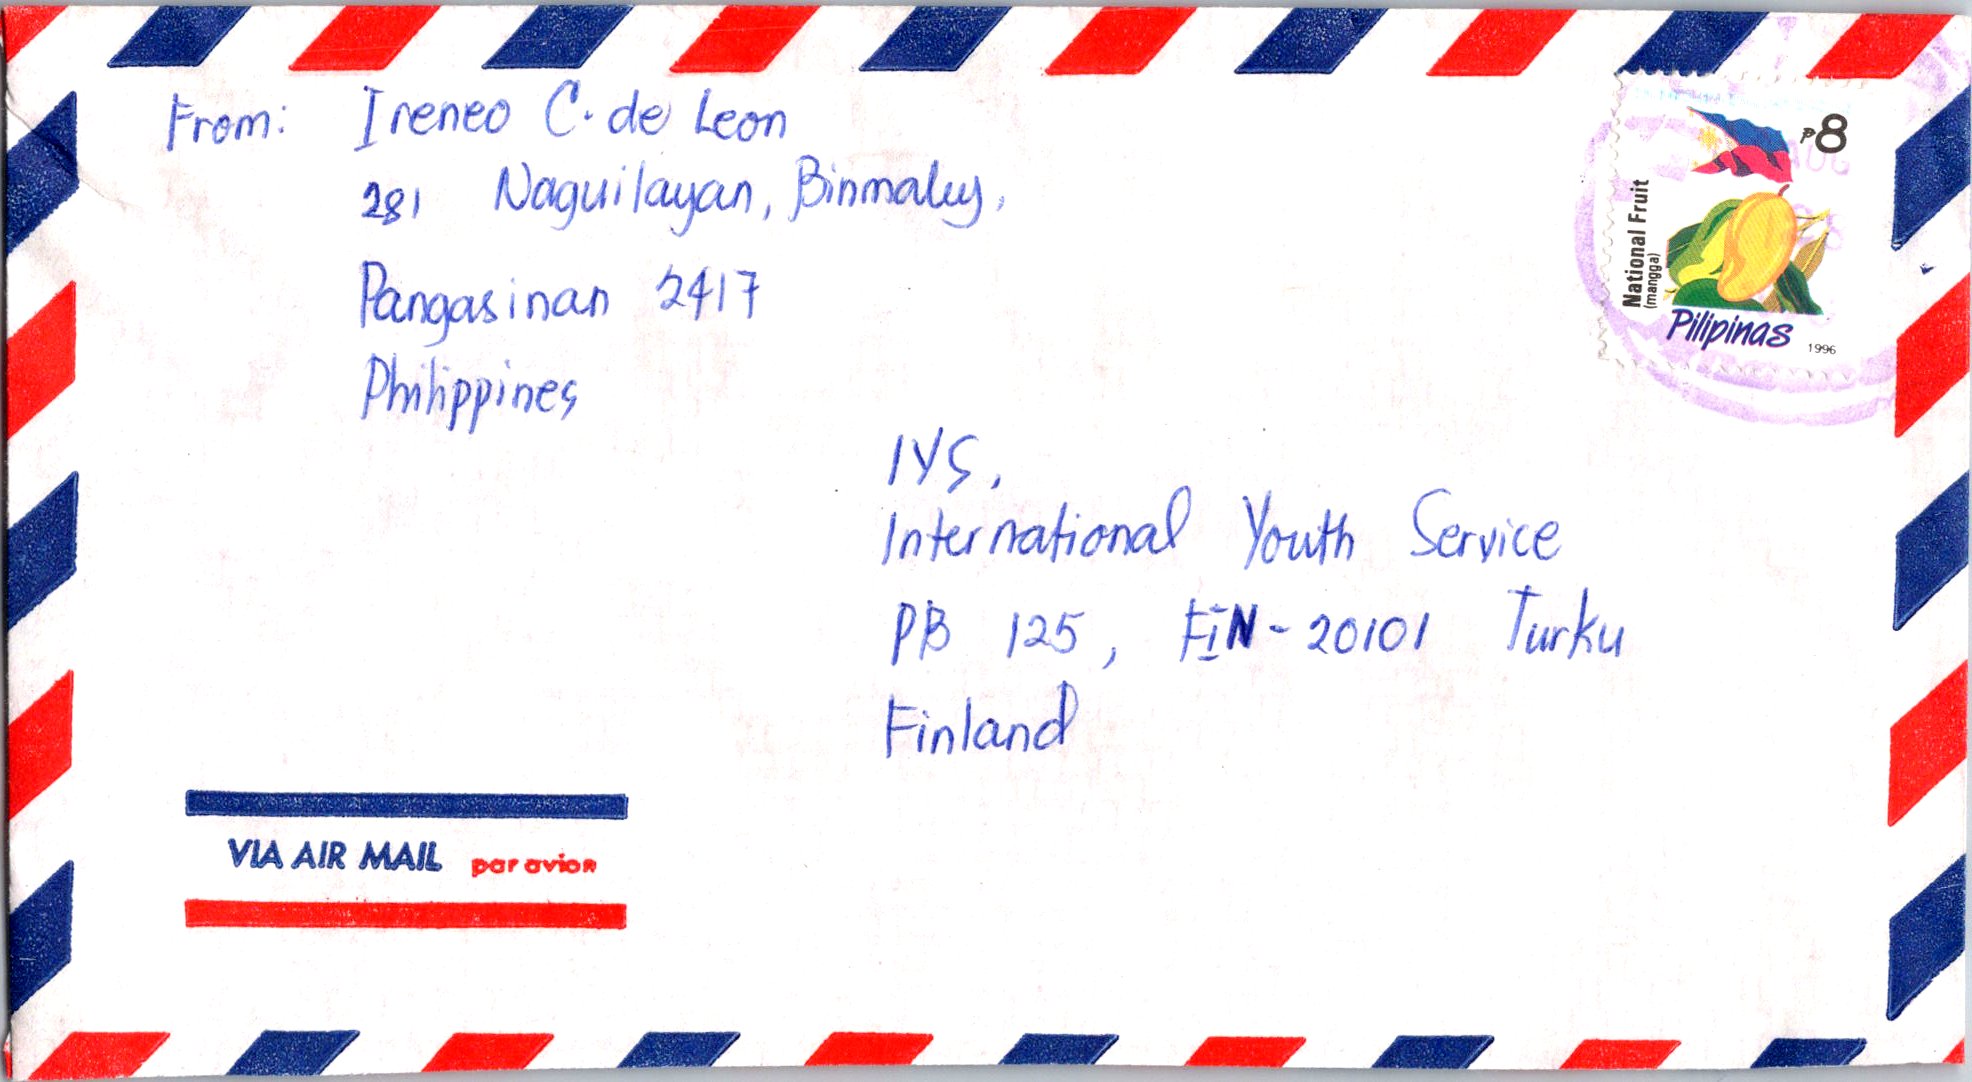 From: Ireneo C. de Leon
281 Naguilayan, Binmaley,
Pangasinan 2417
Philippines
₱8
National Fruit
(mangga)
Pilipinas 1996
IYS,
International Youth Service
PB 125, FIN-20101 Turku
Finland
VIA AIR MAIL par avion